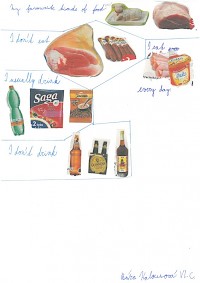 My favourite kinds of food
I don't eat
I eat
every day
I usually drink
Saga
I don't drink
VI. C